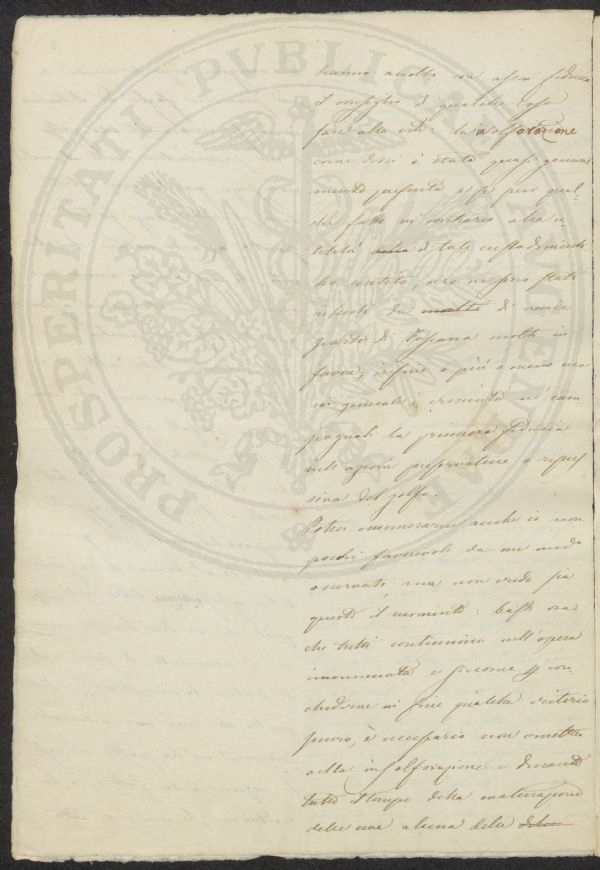 PROSPERITATI PUBLICAE AUGENDAE
hanno accolto con assai fiducia
il consiglio di qualche cosa
fare alle viti: la insolforazione
come dissi è stata quasi general
mente preferita e se pure qual
che fatto in contrario alla u
tilità di tale
ho sentito, ne
riferiti da molti di varie
parti di Toscana molti in
favore, infine o più o meno ma
in generale è cresciuta nei cam
pagnoli la premura fiducia
nell'azione preservatrice o repul
siva del zolfo.
Potrei enumerarne anche io non
pochi favorevoli da me
osservati, ma non credo sia
questo il momento: basti ora
che tutti continuino nell'opera
incominciata e siccome p con
chiudere in fine qualche criterio
sicuro, è necessario non omettere
nella insolforazione e durante
tutto il tempo della maturazione
delle uve alcuna delle